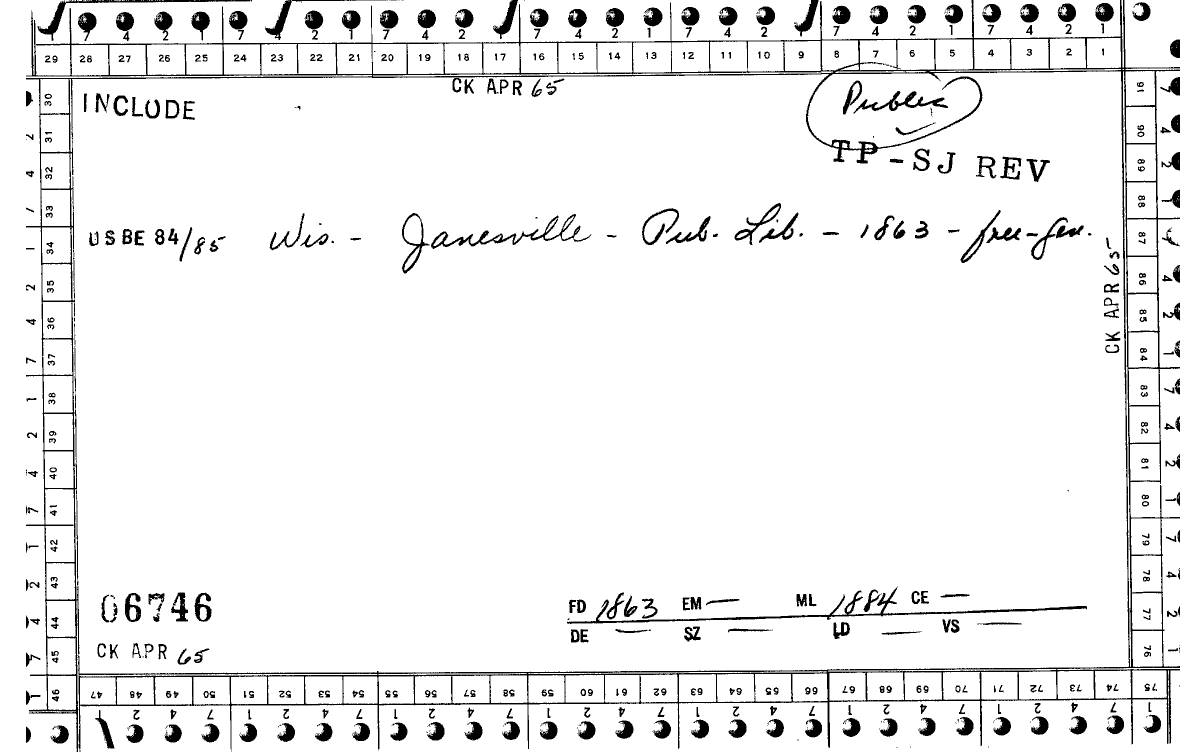 7 4 2 1 7 4 2 1 7 4 2 1 7 4 2 1 7 4 2 1 7 4 2 1
29 28 27 26 25 24 23 22 21 20 19 18 17 16 15 14 13 12 11 10 9 8 7 6 5 4 3 2 1
CK APR 65
INCLUDE
Public
TP-SJ REV
USBE 84/85 Wis. - Janesville - Pub. Lib. - 1863 - free-gen.
CK APR 65
06746
FD 1863 EM — ML 1884 CE —
DE — SZ — LD — VS —
CK APR 65
30 31 32 33 34 35 36 37 38 39 40 41 42 43 44 45 46
91 90 89 88 87 86 85 84 83 82 81 80 79 78 77 76
47 48 49 50 51 52 53 54 55 56 57 58 59 60 61 62 63 64 65 66 67 68 69 70 71 72 73 74 75